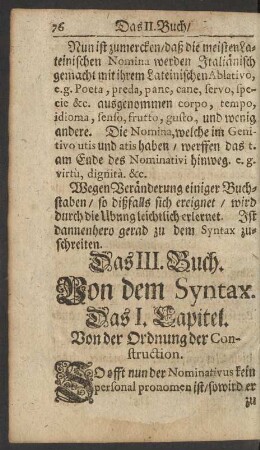 76 Das II. Buch/
Nun ist zumercken/daß die meisten La-
teinischen Nomina werden Jtaliänisch
gemacht mit ihrem Lateinischen Ablativo,
e.g. Poeta, preda, pane, cane, servo, spe-
cie &c. ausgenommen corpo, tempo,
idioma, senso, frutto, gusto, und wenig
andere. Die Nomina, welche im Geni-
tivo utis und atis haben / werffen das t.
am Ende des Nominativi hinweg. e. g.
virtù, dignità. &c.
Wegen Veränderung einiger Buch-
staben / so dißfalls sich ereignet / wird
durch die Ubung leichtlich erlernet. Jst
dannenhero gerad zu dem Syntax zu-
schreiten.
Das III. Buch.
Von dem Syntax.
Das I. Capitel.
Von der Ordnung der Con-
struction.
SO offt nun der Nominativus kein
personal pronomen ist/ so wird er
zu